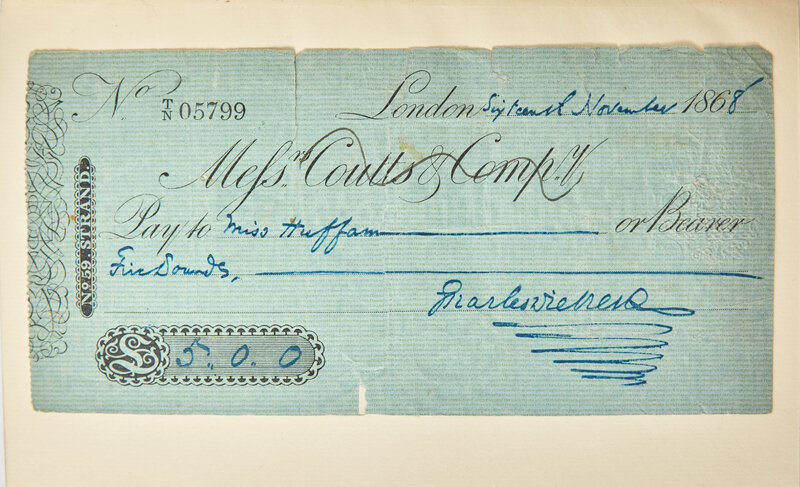 No T/N 05799 London Sixteenth November 1868
Messrs Coutts & Compy
Pay to Miss Huffam or Bearer
Five Pounds,
Charles Dickens
£ 5. 0. 0
No 59. STRAND.